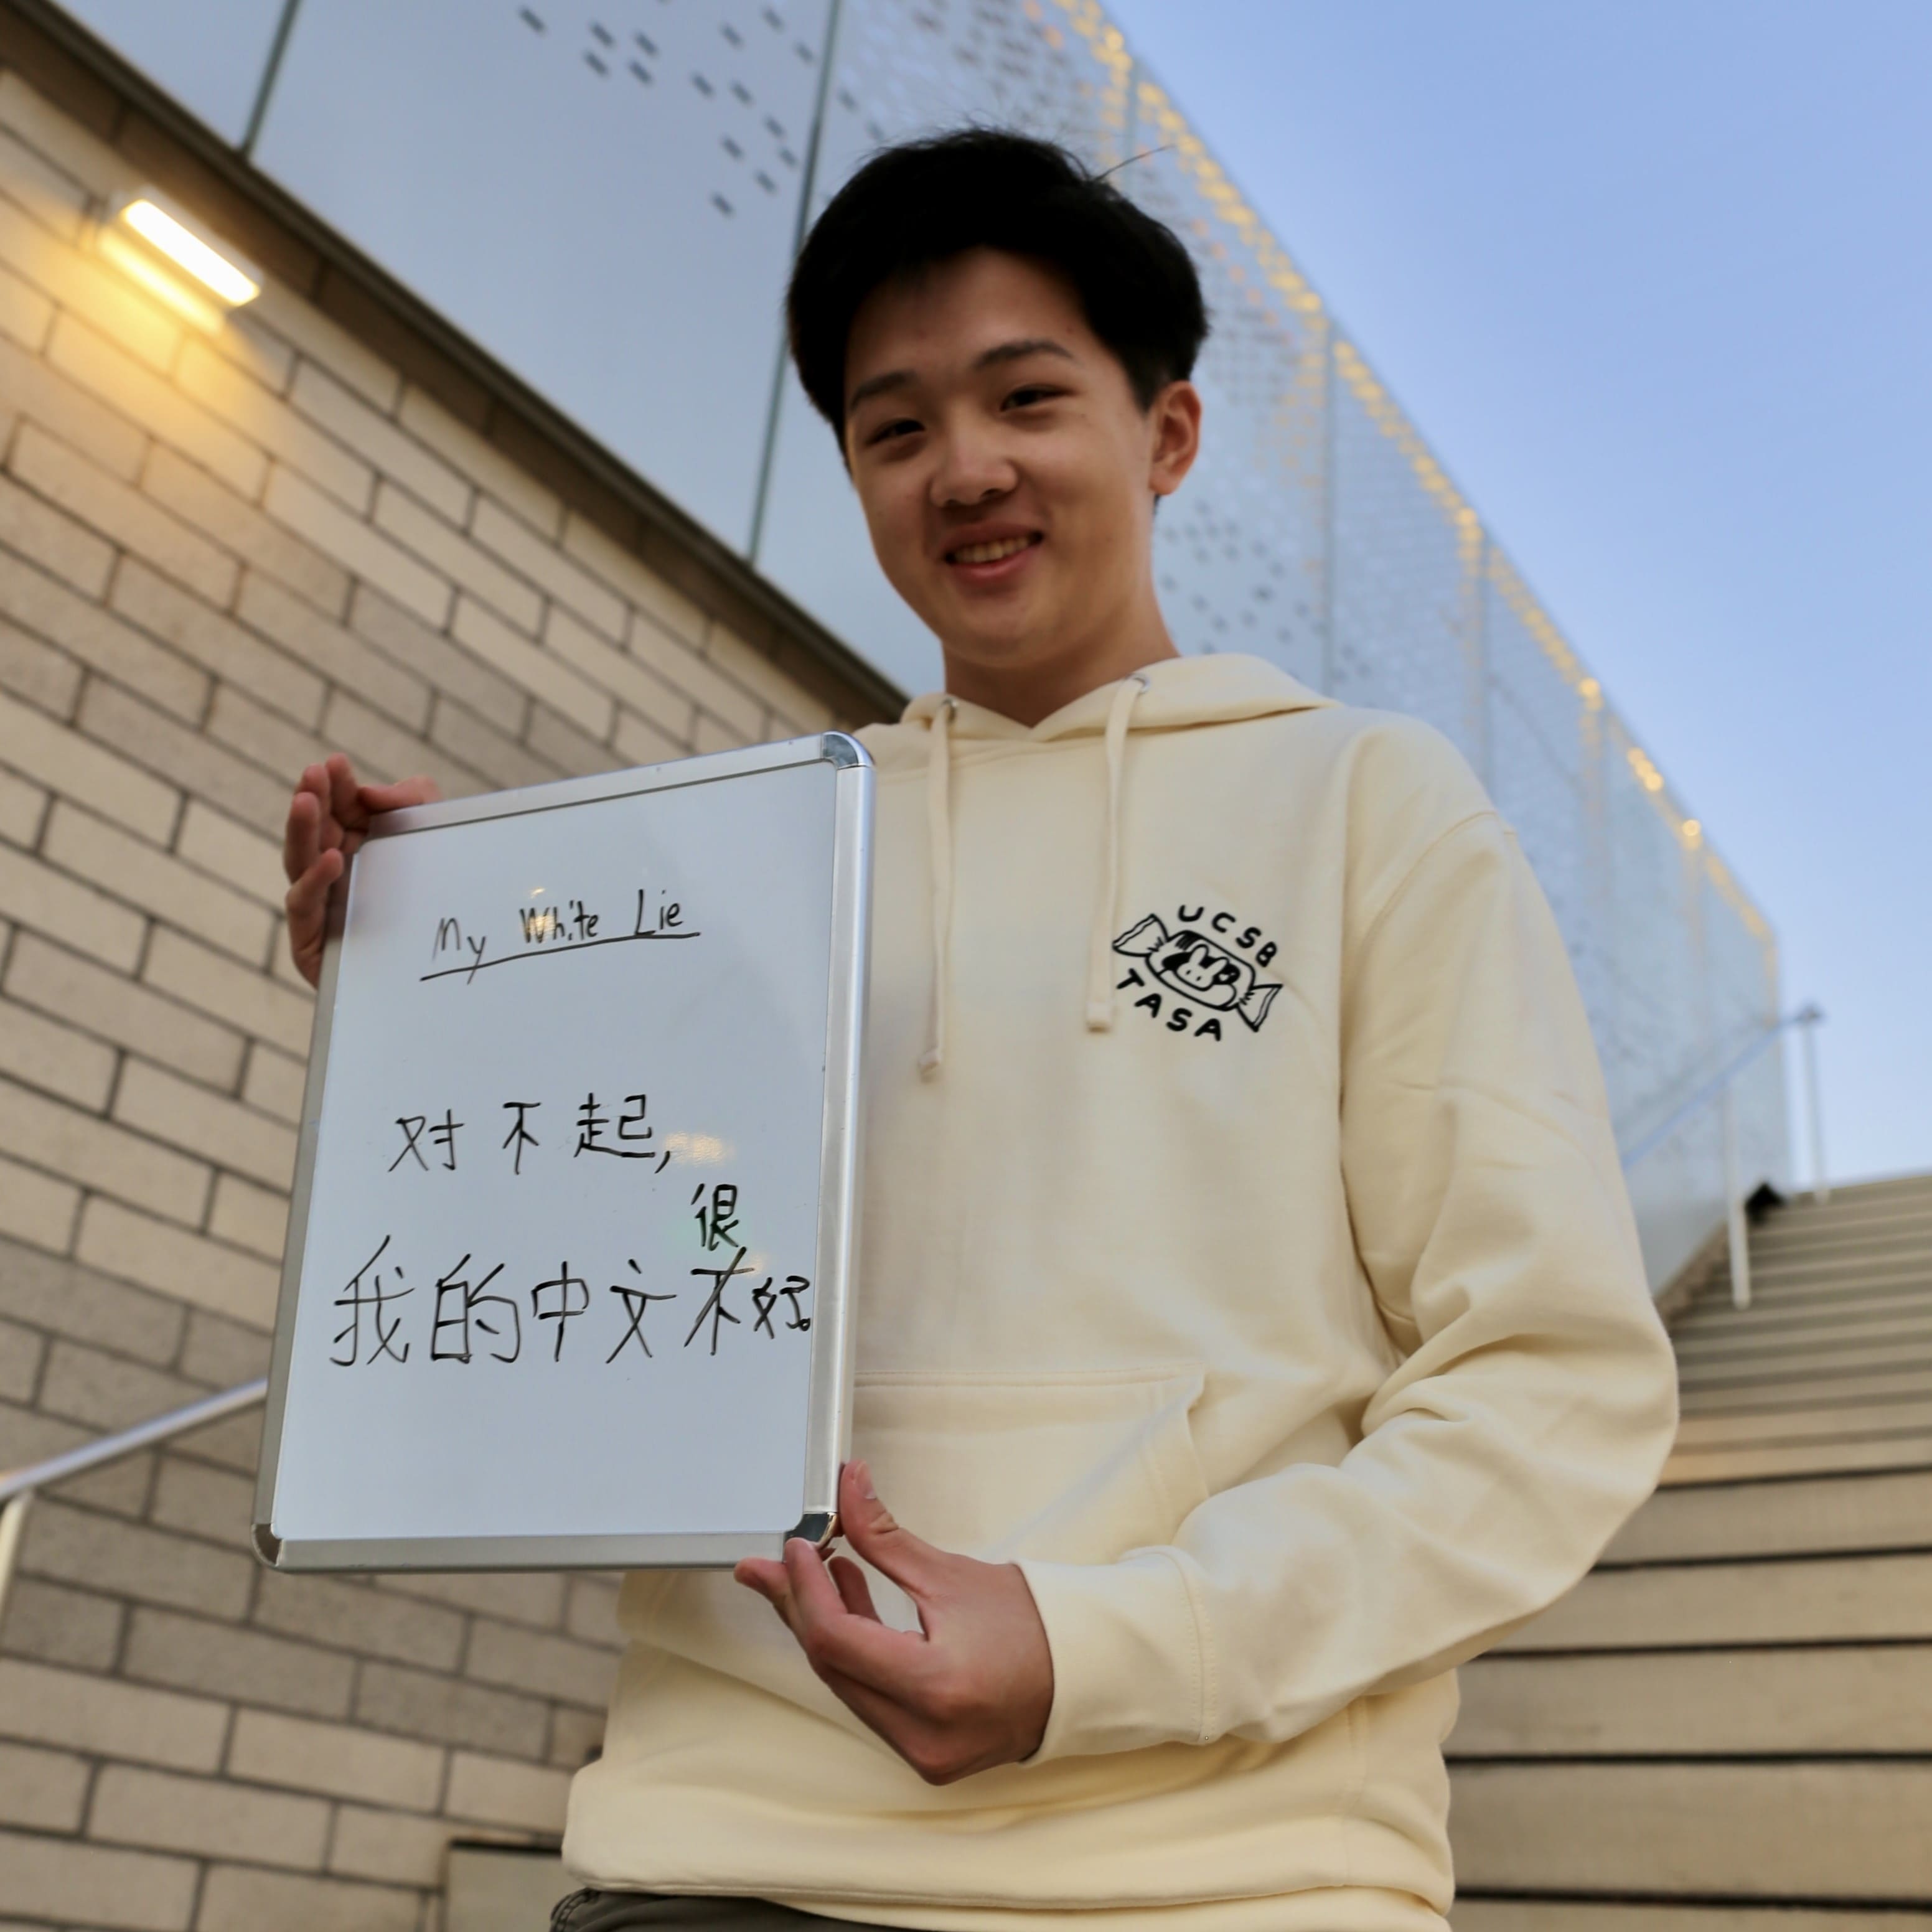 My White Lie
对不起,
很
我的中文不好。
UCSB
TASA